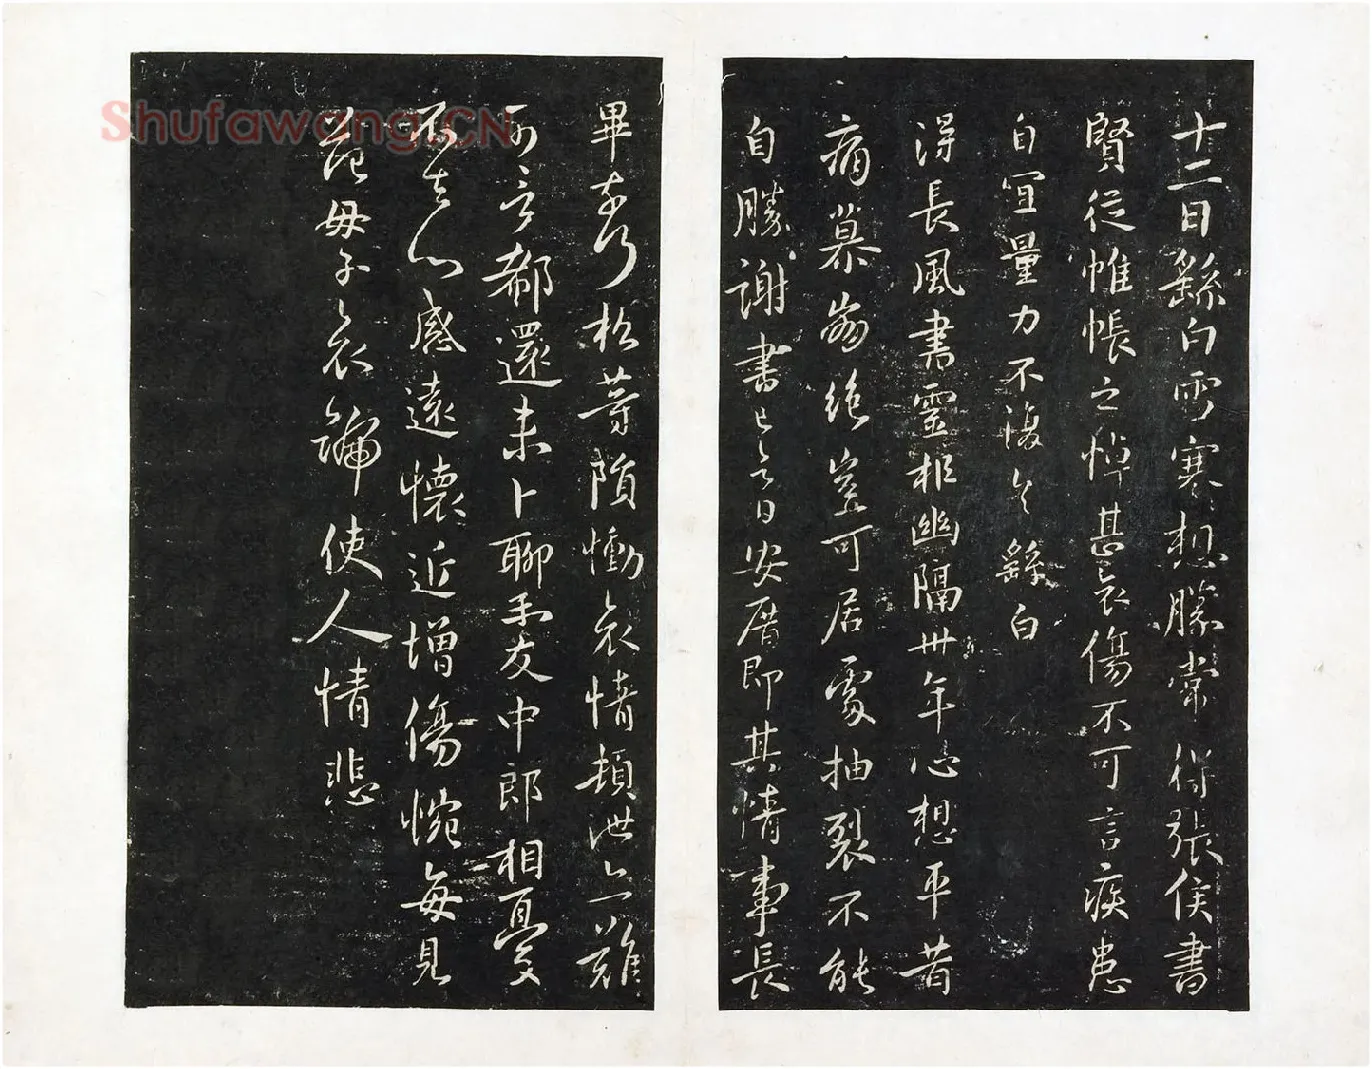 十二日繇白雪寒想勝常得張侯書
賢從帷帳之悼甚哀傷不可言疾患
自宜量力不復具繇白
得長風書靈柩幽隔卅年心想平昔
痛慕崩絕豈可居處抽裂不能
自勝謝書已今日安厝即其情事長
畢奈何松等隕慟哀情頓泄亦難
可言都還未卜聊示友中郎相憂
不去心感遠懷近增傷惋每見
范母子哀號使人情悲
Shufawang.CN